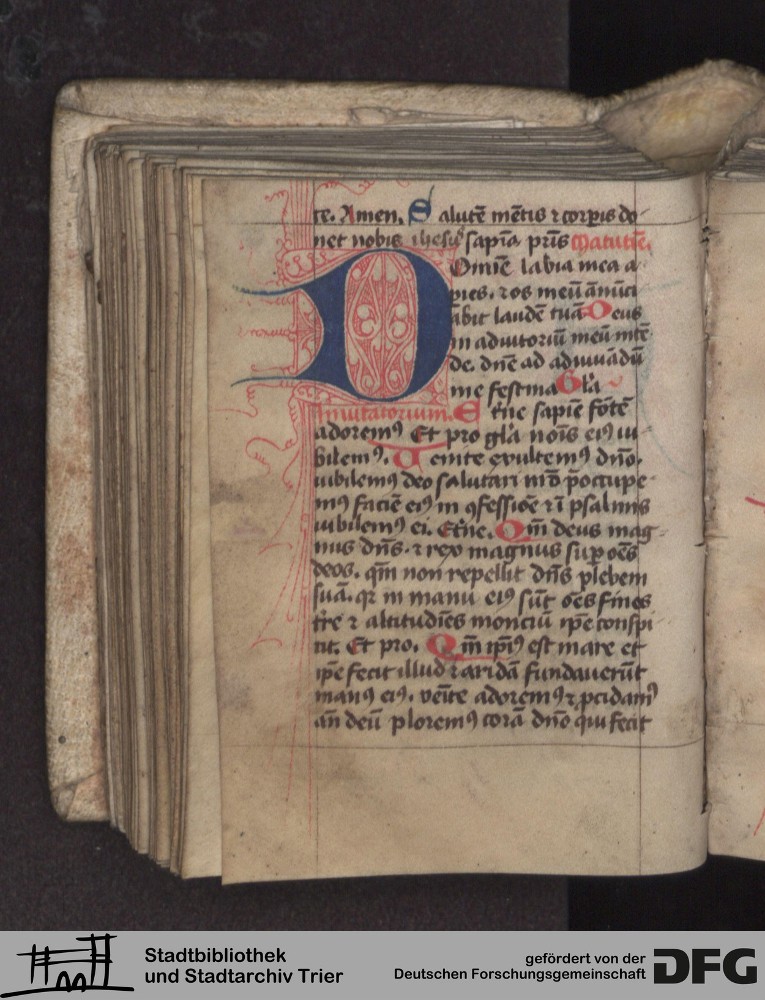 te. Amen. Salutē mētis ⁊ corpis do
net nobis ihesus sapīa pr̄is Matutin̄.
Domīe labia mea a
pies. ⁊ os meū ānūci
abit laudē tuā Deus
in adiutoriū meū intē
de. dn̄e ad adiuuādū
me festina Gl'a
Inuitatorium. Et'ne sapiē fōtē
adoremꝰ Et pro gl'a noīs eiꝰ iu
bilemꝰ. Uenite exultemꝰ dn̄o.
iubilemꝰ deo salutari nr̄o p̄occupe
mꝰ faciē eiꝰ in ꝯfessiōe ⁊ ī psalmis
iubilemꝰ ei. Et'ne. Qm̄ deus mag
nus dn̄s. ⁊ rex magnus sup oēs
deos. qm̄ non repellit dn̄s plebem
suā. qr in manu eiꝰ sūt oēs fines
t're ⁊ altitudīes monciū ip̄e conspi
cit. Et pro. Qm̄ ip̄iꝰ est mare et
ip̄e fecit illud ⁊ aridā fundauerūt
manꝰ eiꝰ. venīte adoremꝰ ⁊ p̱cidamꝰ
an̄ deū ploremꝰ corā dn̄o qui fecit
Stadtbibliothek
und Stadtarchiv Trier
gefördert von der
Deutschen Forschungsgemeinschaft
DFG